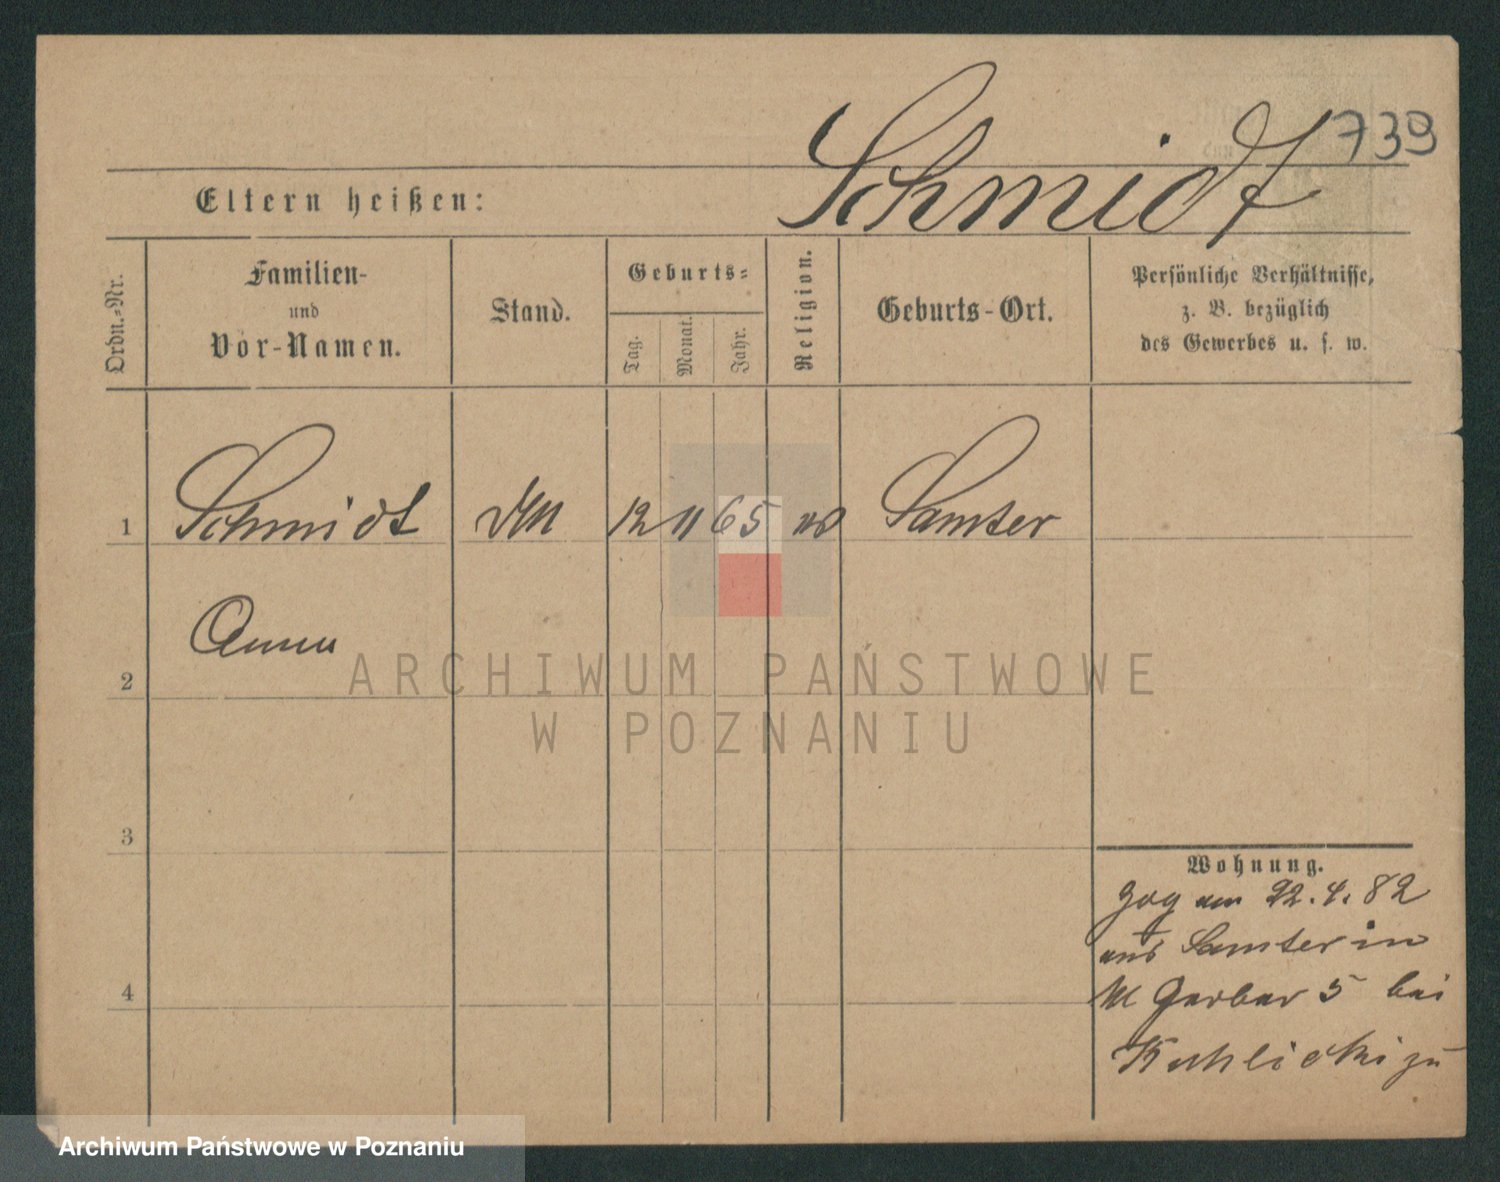 739
Schmidt
Eltern heißen:
Ordn.-Nr.
Familien-
und
Vor-Namen.
Stand.
Geburts-
Tag.
Monat.
Jahr.
Religion.
Geburts-Ort.
Persönliche Verhältnisse,
z. B. bezüglich
des Gewerbes u. s. w.
1 Schmidt 12 11 65 Samter
Anna
2
ARCHIWUM PAŃSTWOWE
W POZNANIU
3
Wohnung.
Zog am 22.4.82
aus Samter in
Gerber 5 bei
4
zu
Archiwum Państwowe w Poznaniu